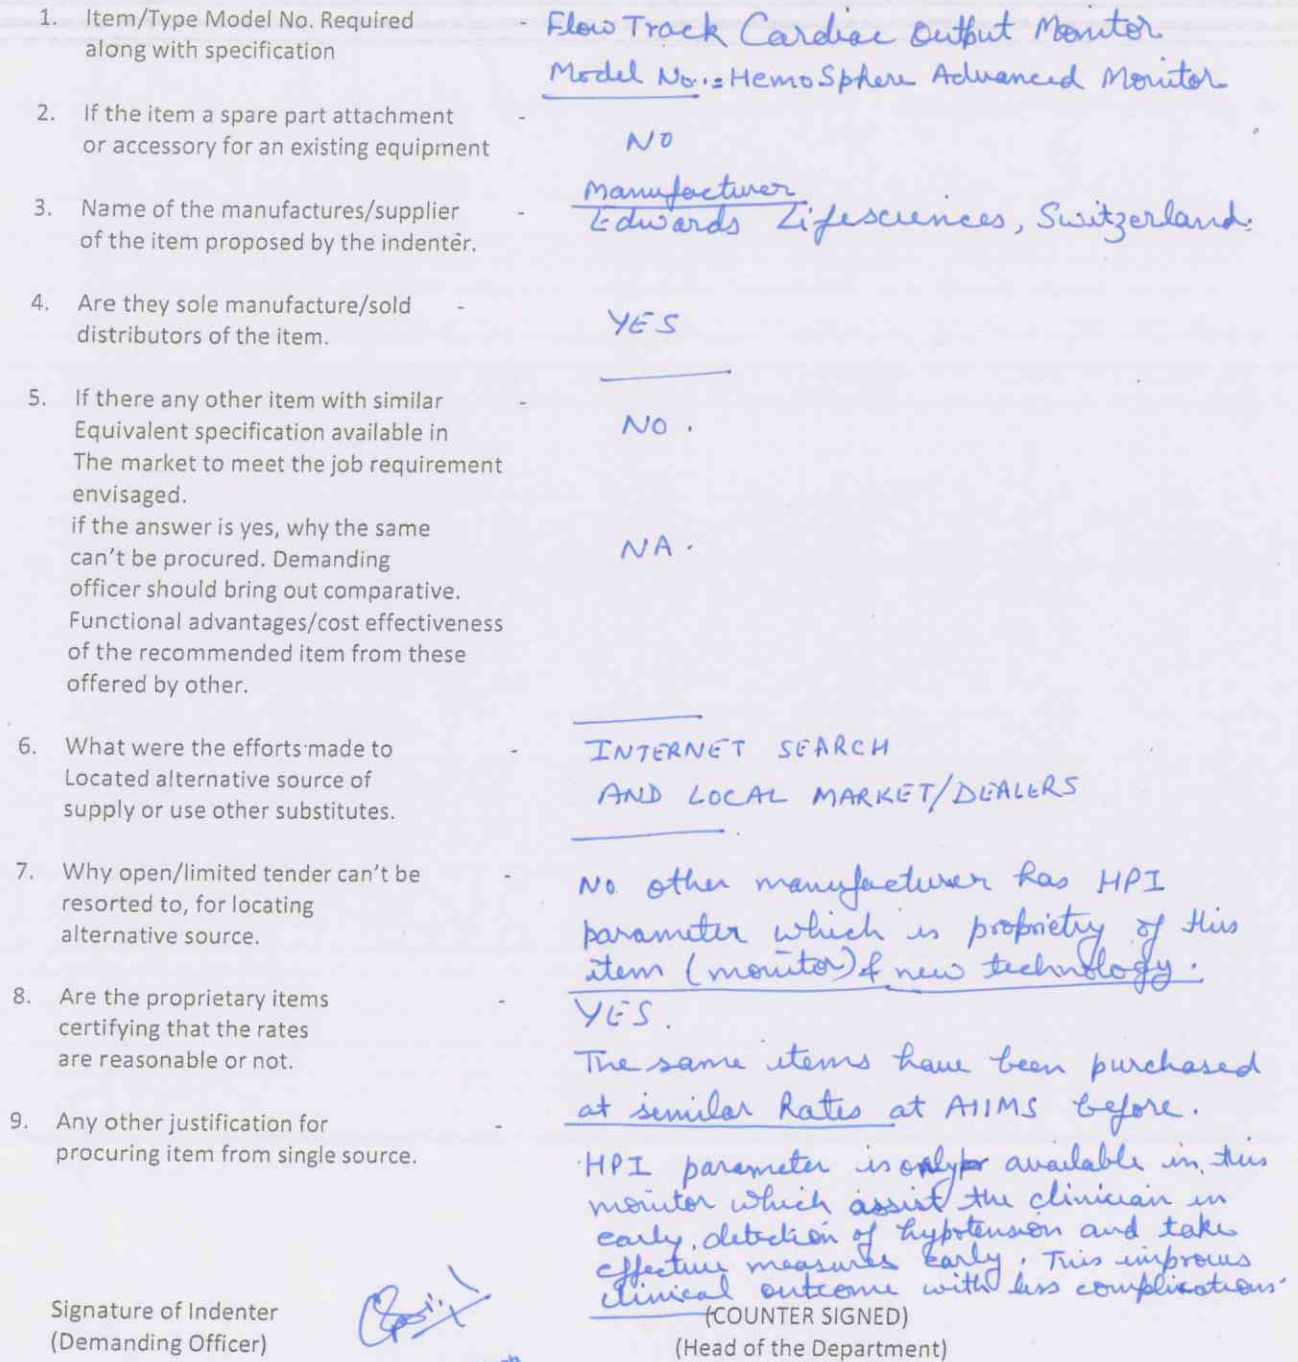 1. Item/Type Model No. Required - Flow Track Cardiac Output Monitor
along with specification
Model No.:= HemoSphere Advanced Monitor
2. If the item a spare part attachment -
or accessory for an existing equipment NO
Manufacturer
3. Name of the manufactures/supplier - Edwards Lifesciences, Switzerland.
of the item proposed by the indenter.
4. Are they sole manufacture/sold -
distributors of the item. YES
5. If there any other item with similar -
Equivalent specification available in NO.
The market to meet the job requirement
envisaged.
if the answer is yes, why the same
can't be procured. Demanding NA.
officer should bring out comparative.
Functional advantages/cost effectiveness
of the recommended item from these
offered by other.
6. What were the efforts made to - INTERNET SEARCH
Located alternative source of
supply or use other substitutes. AND LOCAL MARKET/DEALERS
7. Why open/limited tender can't be - No other manufacturer has HPI
resorted to, for locating parameter which is proprietry of this
alternative source. item (monitor) & new technology.
8. Are the proprietary items - YES.
certifying that the rates
are reasonable or not. The same items have been purchased
at similar Rates at AIIMS before.
9. Any other justification for -
procuring item from single source. HPI parameter is only available in this
monitor which assist the clinician in
early detection of hypotension and take
effective measures early. This improves
clinical outcome with less complications.
Signature of Indenter (COUNTER SIGNED)
(Demanding Officer) (Head of the Department)